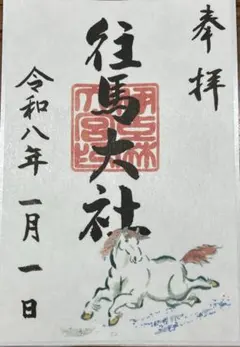 奉拝
往馬大社
令和八年一月一日